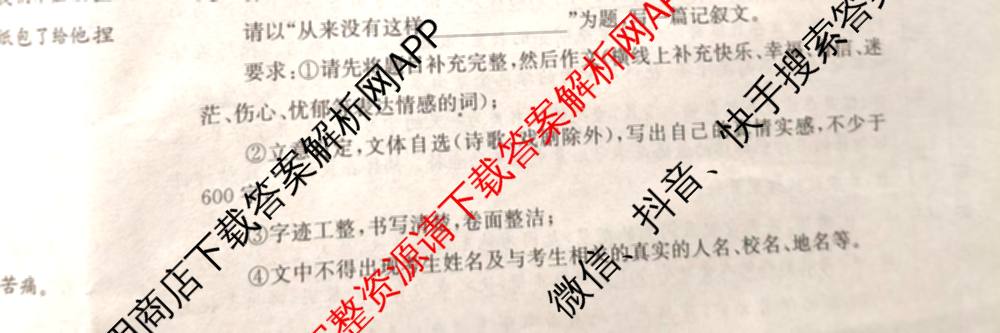 纸包了给他捏
苦痛。
请以“从来没有这样________”为题,写一篇记叙文。
要求:①请先将题目补充完整,然后作文(横线上补充快乐、幸、迷
茫、伤心、忧郁等表达情感的词);
②立定,文体自选(诗歌、戏剧除外),写出自己的情实感,不少于
600
③字迹工整,书写清楚,卷面整洁;
④文中不得出现生姓名及与考生相的真实的人名、校名、地名等。
用商店下载答案解析网APP
完整资源请下载答案解析网AP
微信、抖音、快手搜索答案